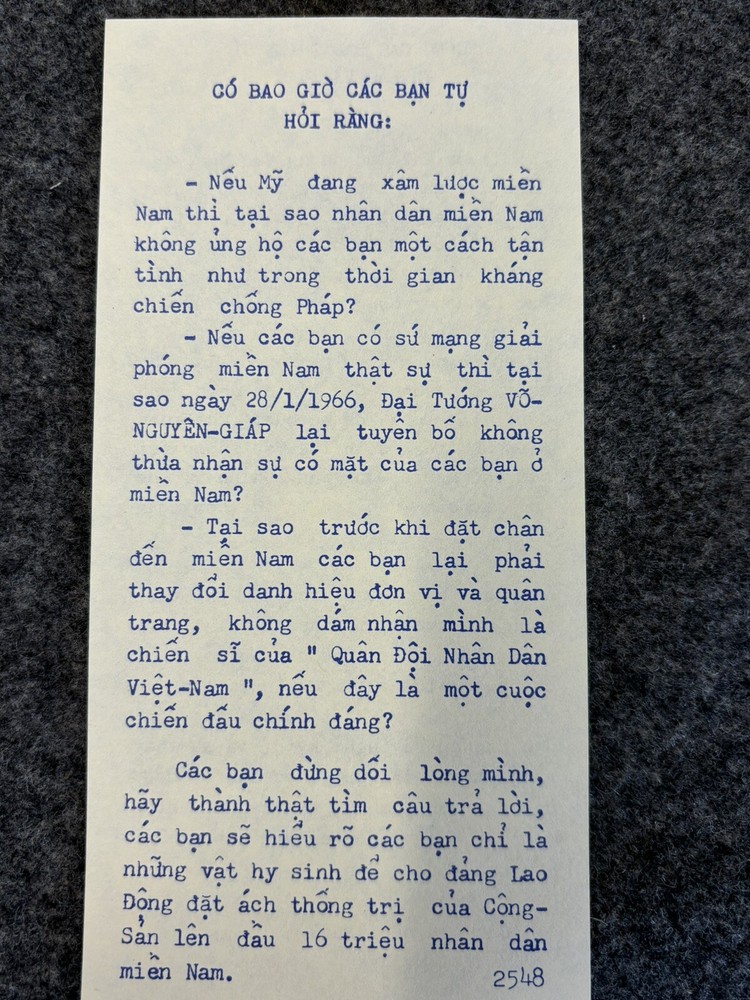 CÓ BAO GIỜ CÁC BẠN TỰ
HỎI RẰNG:
- Nếu Mỹ đang xâm lược miền
Nam thì tại sao nhân dân miền Nam
không ủng hộ các bạn một cách tận
tình như trong thời gian kháng
chiến chống Pháp?
- Nếu các bạn có sứ mạng giải
phóng miền Nam thật sự thì tại
sao ngày 28/1/1966, Đại Tướng VÕ-
NGUYÊN-GIÁP lại tuyên bố không
thừa nhận sự có mặt của các bạn ở
miền Nam?
- Tại sao trước khi đặt chân
đến miền Nam các bạn lại phải
thay đổi danh hiệu đơn vị và quân
trang, không dám nhận mình là
chiến sĩ của " Quân Đội Nhân Dân
Việt-Nam ", nếu đây là một cuộc
chiến đấu chính đáng?
Các bạn đừng dối lòng mình,
hãy thành thật tìm câu trả lời,
các bạn sẽ hiểu rõ các bạn chỉ là
những vật hy sinh để cho đảng Lao
Động đặt ách thống trị của Cộng-
Sản lên đầu 16 triệu nhân dân
miền Nam. 2548